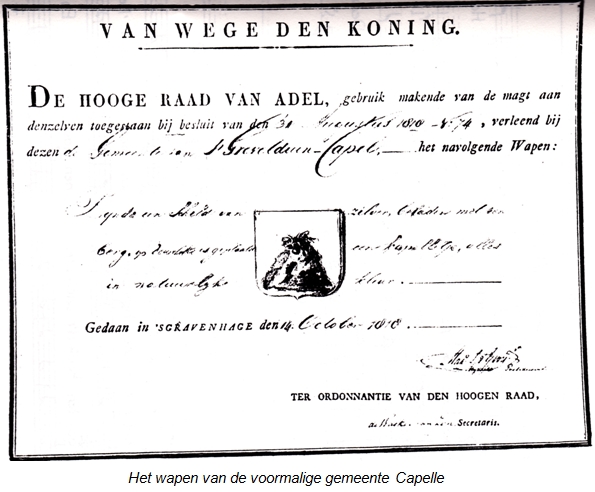 VAN WEGE DEN KONING.
DE HOOGE RAAD VAN ADEL, gebruik makende van de magt aan
denzelven toegestaan bij besluit van den 31 Augustus 1818 N. 74, verleend bij
dezen de Gemeente van 'sGrevelduin-Capel, het navolgende Wapen:
zilver, beladen met een
berg, op alles
in natuurlijke kleur.
Gedaan in 'SGRAVENHAGE den 14. October 1818.
TER ORDONNANTIE VAN DEN HOOGEN RAAD,
Secretaris.
Het wapen van de voormalige gemeente Capelle